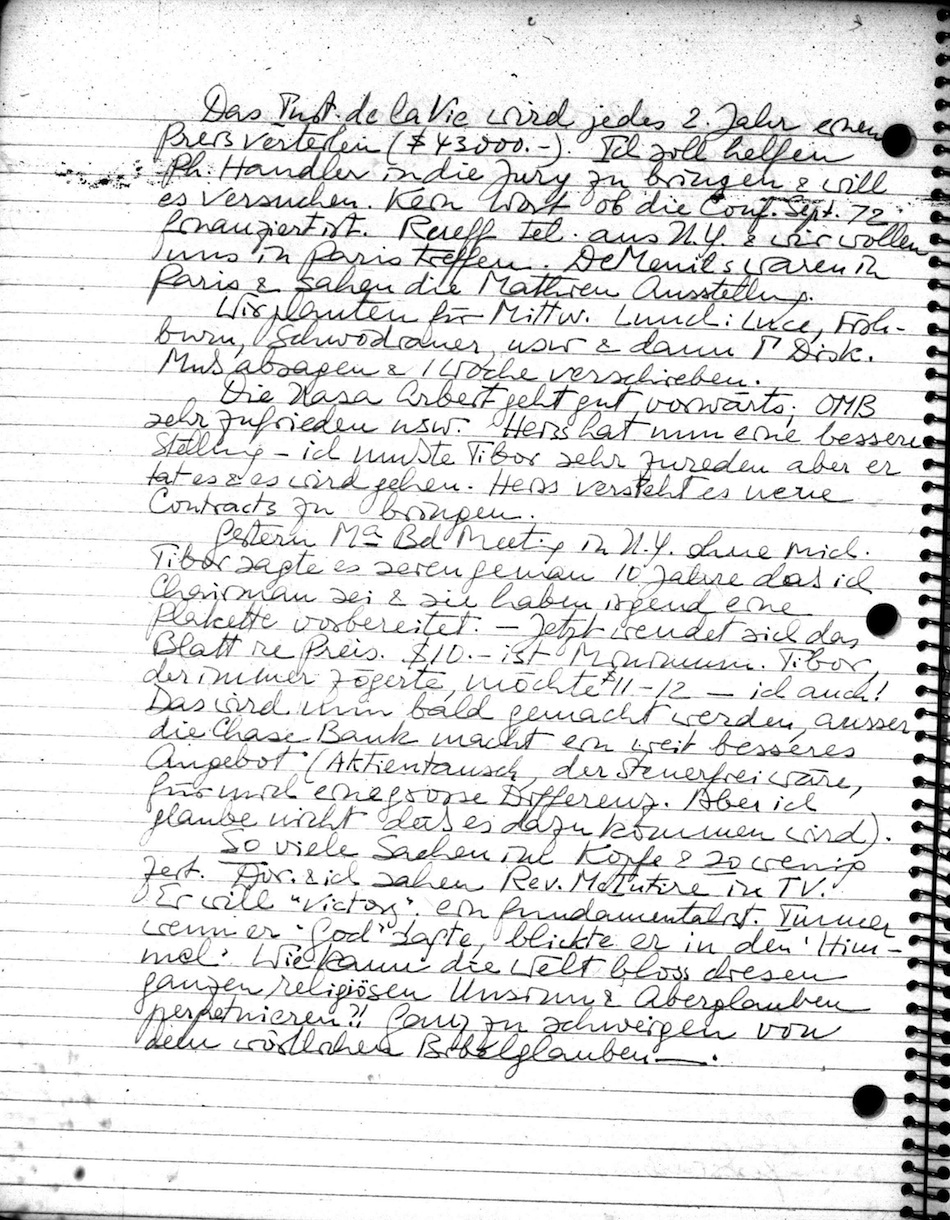 Das Inst. de la Vie wird jedes 2. Jahr einen
Preis verteilen ($43000.-). Ich soll helfen
Ph. Handler in die Jury zu bringen & will
es versuchen. Kein Wort ob die Conf. Sept. 72
finanziert ist. Rueff tel. aus N.Y. & wir wollen
uns in Paris treffen. De Menils waren in
Paris & sahen die Mathieu Ausstellung.
Wir planten für Mittw. Lunch: Luce, Froh-
burn, Schwodrauer, usw & dann Disk.
Muß absagen & 1 Woche verschieben.
Die Nasa Arbeit geht gut vorwärts; OMB
sehr zufrieden usw. Heiss hat nun eine bessere
Stellung – ich mußte Tibor sehr zureden aber er
tat es & es wird gehen. Heiss versteht es neue
Contracts zu bringen.
Gestern Ma Bd Meeting in N.Y. ohne mich.
Tibor sagte es seien genau 10 Jahre das ich
Chairman sei & sie haben irgend eine
Plakette vorbereitet. – Jetzt wendet sich das
Blatt re Preis. $10.- ist Minimum. Tibor,
der immer zögerte, möchte $11-12 – ich auch!
Das wird nun bald gemacht werden, ausser
die Chase Bank macht ein weit besseres
Angebot (Aktientausch, der steuerfrei wäre,
für mich eine grosse Differenz. Aber ich
glaube nicht daß es dazu kommen wird).
So viele Sachen im Kopfe & so wenig
Zeit. & ich sahen Rev. McIntire in TV.
Er will "Victory". ein fundamentalist. Immer
wenn er "God" sagte, blickte er in den 'Him-
mel'. Wie kann die Welt bloss diesen
ganzen religiösen Unsinn & Aberglauben
perpetuieren?! Ganz zu schweigen von
dem wörtlichen Bibelglauben —.